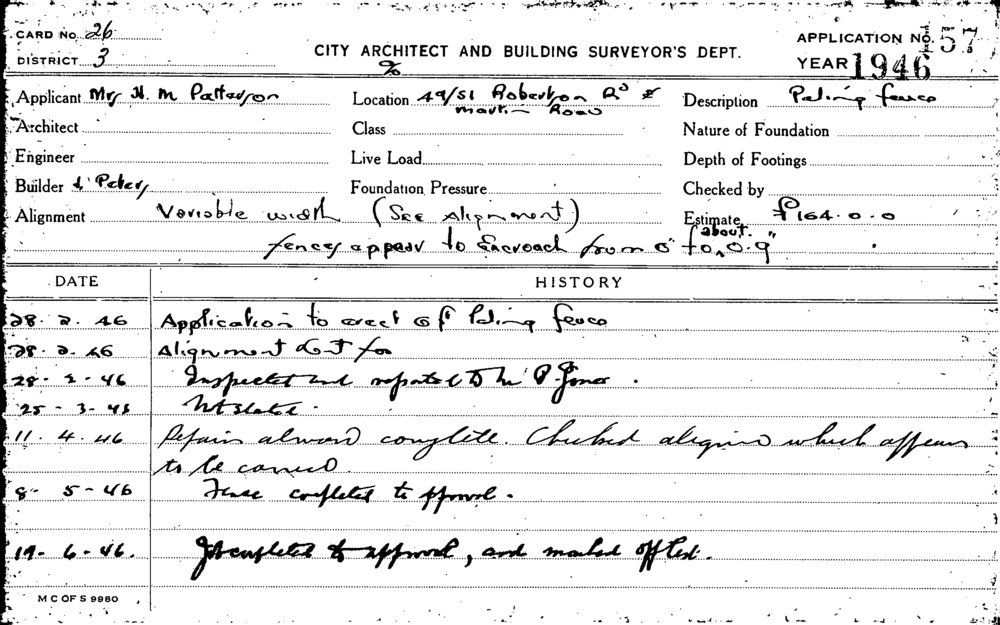 CARD No. 26
DISTRICT 3
CITY ARCHITECT AND BUILDING SURVEYOR'S DEPT.
%
APPLICATION No. 57
YEAR 1946
Applicant Mrs H. M Patterson
Location 49/51 Robertson Rd &
Martin Road
Description Paling fence
Architect
Class
Nature of Foundation
Engineer
Live Load
Depth of Footings
Builder J. Peters
Foundation Pressure
Checked by
Alignment Variable width (See Alignment)
Estimate £164.0.0
fences appear to Encroach from 0" to about 0.9"
DATE
HISTORY
28. 2. 46 Application to erect 6ft Paling fence
28. 2. 46 Alignment
28. 2. 46 Inspected and reported to Mr P. Jones.
25 - 3 - 46 Not started.
11. 4. 46 Repairs almost complete. Checked aligns which appears
to be correct.
8 - 5 - 46 Fence completed to approval.
19 - 6 - 46. Job completed to approval, and marked off list.
M C OF S 9980